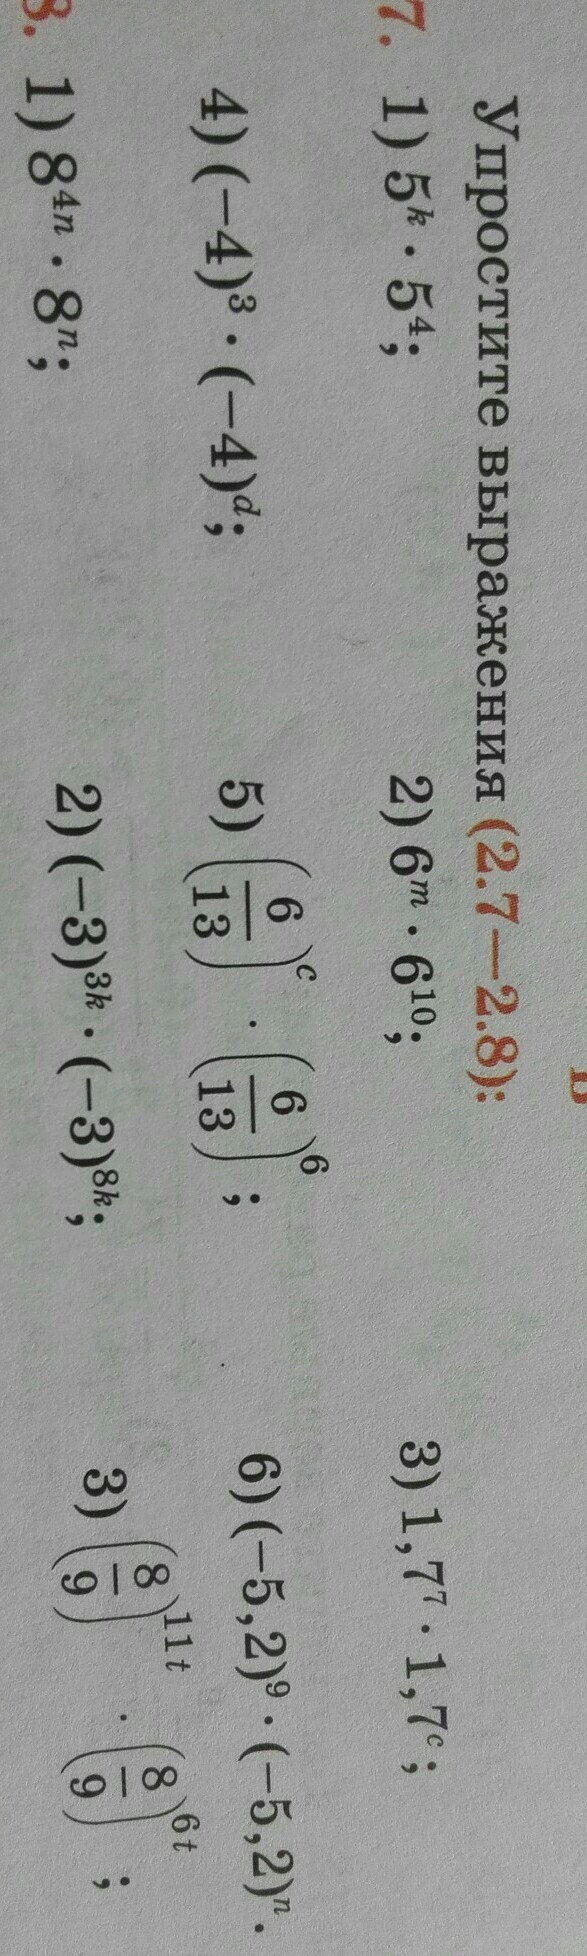 Упростите выражения (2.7—2.8):
7. 1) 5^k · 5^4; 2) 6^m · 6^10; 3) 1,7^7 · 1,7^c;
4) (−4)^3 · (−4)^d; 5) (6/13)^c · (6/13)^6; 6) (−5,2)^9 · (−5,2)^n.
8. 1) 8^{4n} · 8^n; 2) (−3)^{3k} · (−3)^{8k}; 3) (8/9)^{11t} · (8/9)^{6t};